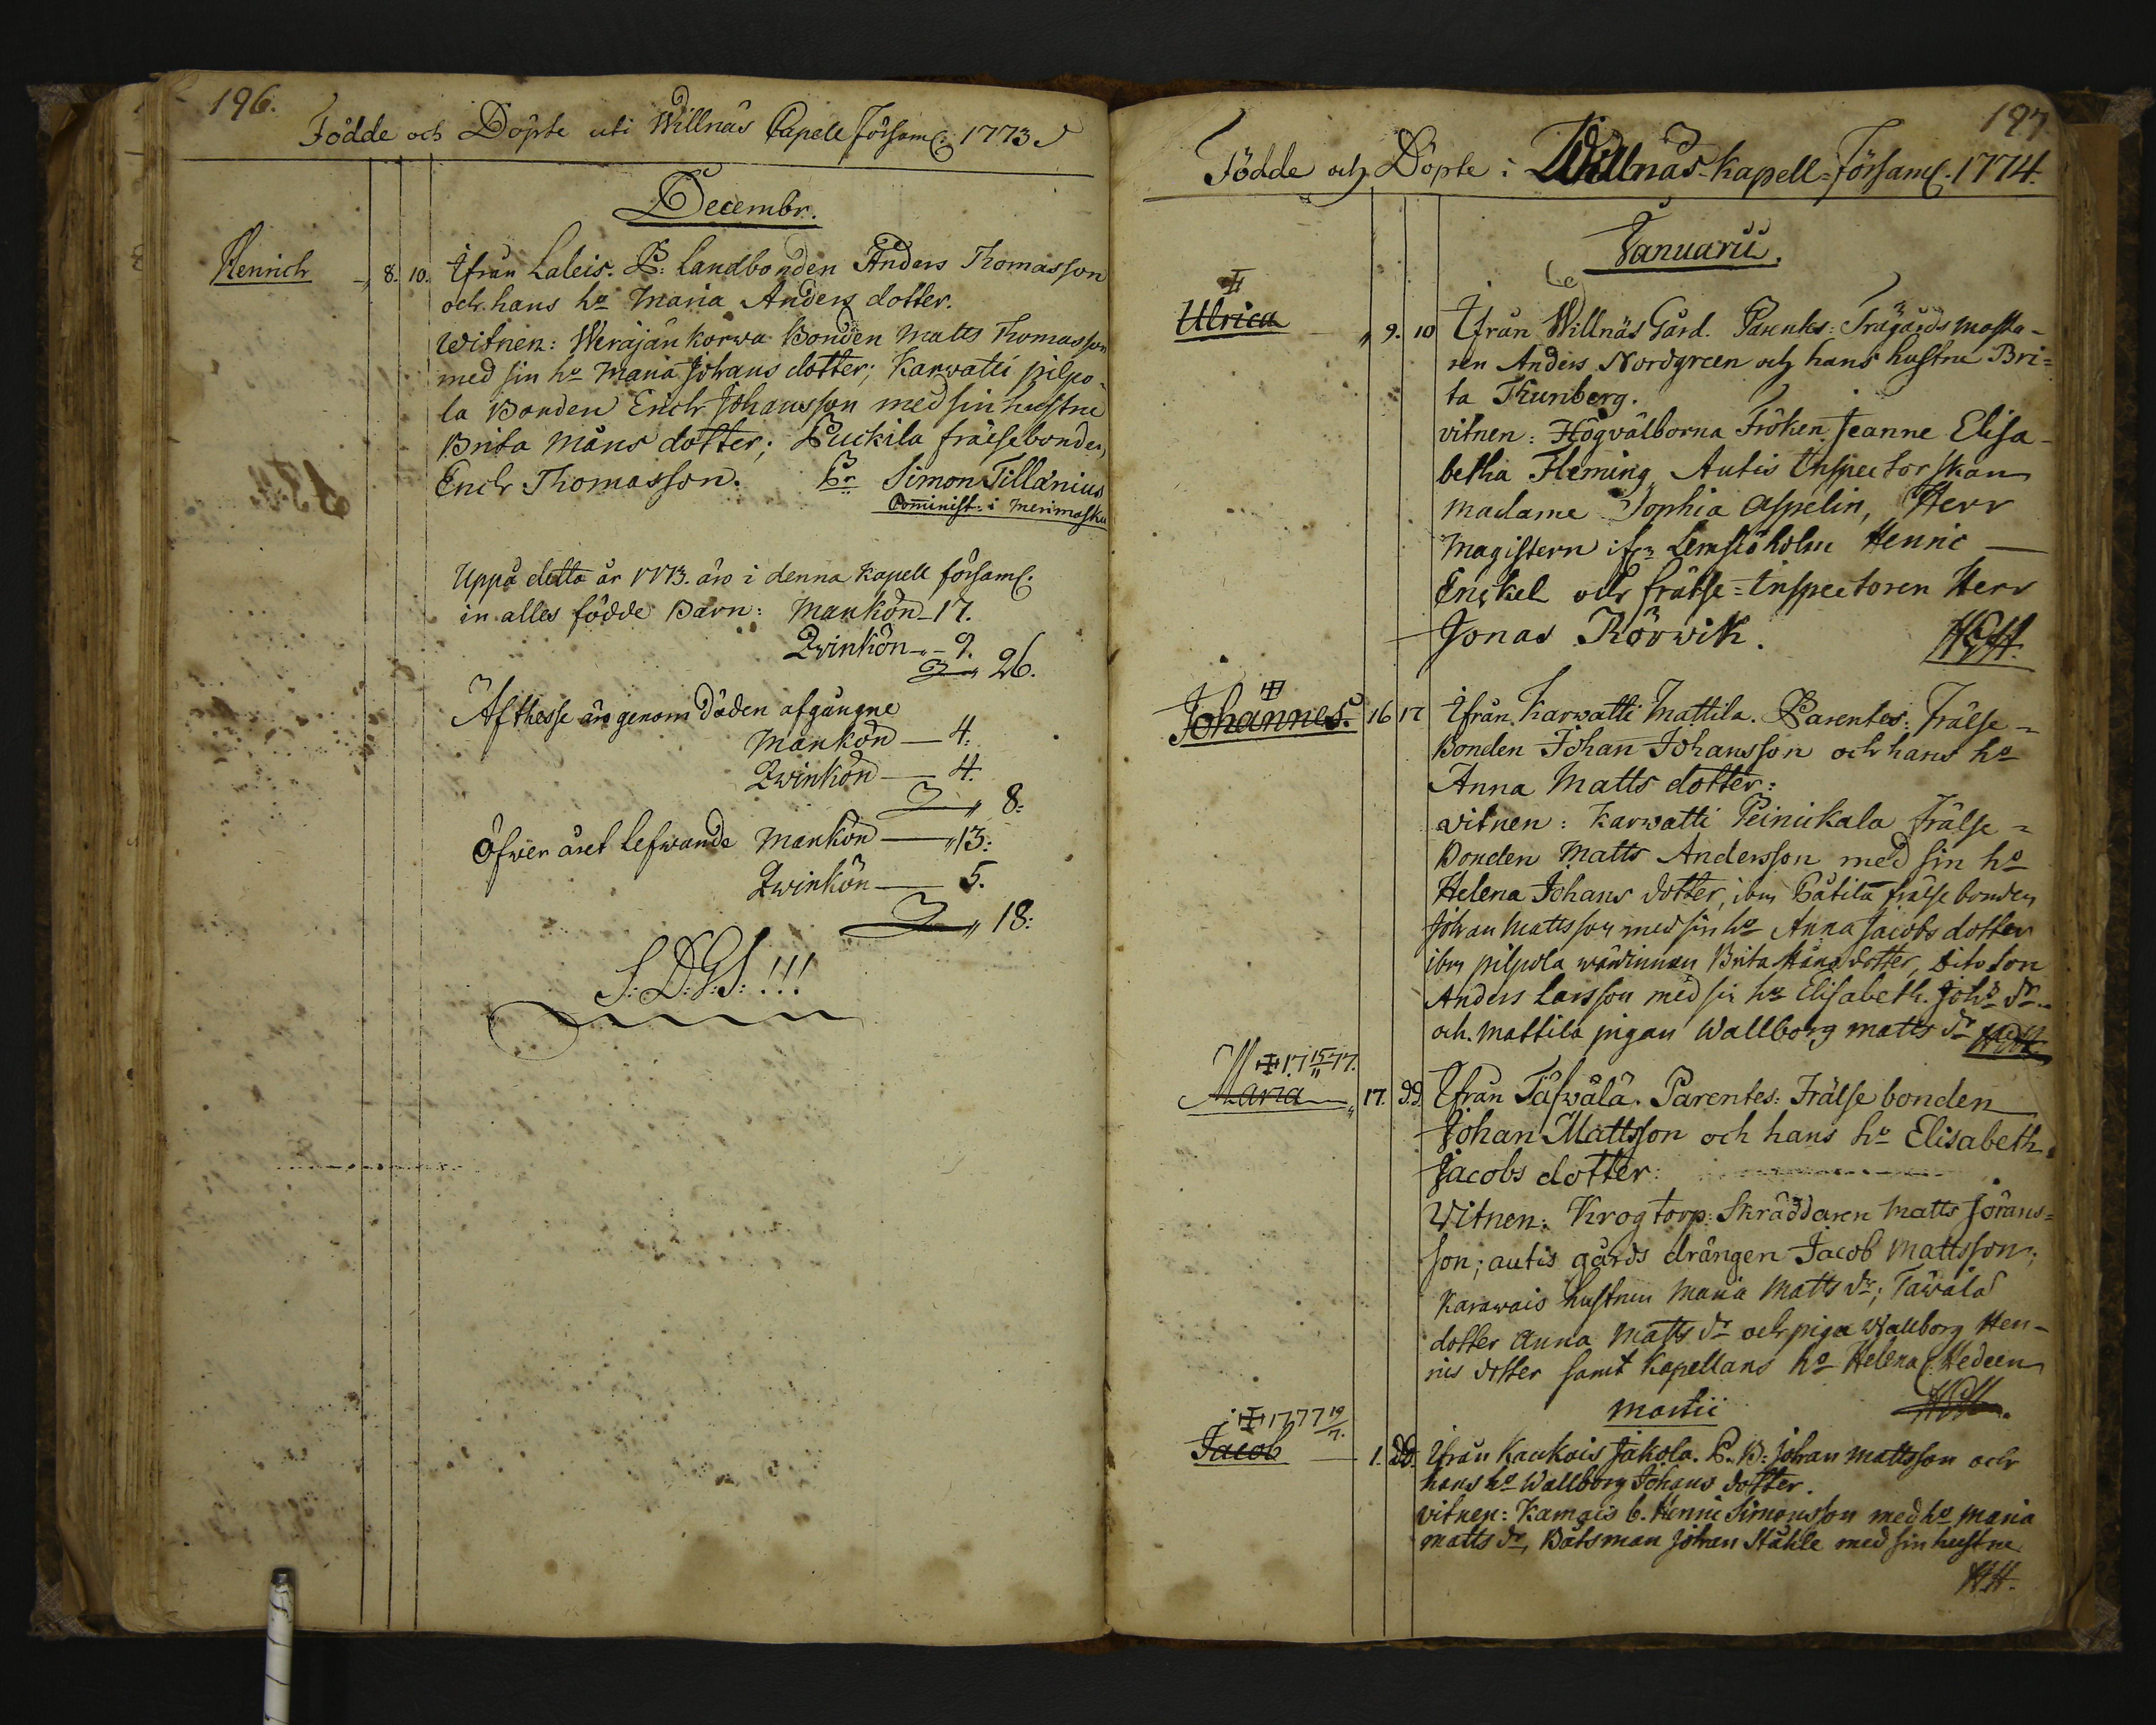 196.
Födde och Döpte uti Willnäs Capell församl: 1773
Decembr.
Henrich 8. 10. Ifrån Laleis. P: Landbonden Anders Thomasson
och hans ho Maria Anders dotter.
Witnen: Weräjänkorwa Bonden Matts Thomasson
med sin ho Maria Johans dotter; Karwatti pilpo-
la Bonden Erich Johansson med sin hustru
Brita Måns dotter; Puckila frälsebonden
Erich Thomasson. Pr Simon Tillänius
Comminist: i Merimasku
Uppå detta år 1773. äro i denna Kapell församl.
in alles födde Barn: Mankön 17.
Qvinkön 9.
26.
Af thesse äro genom döden afgångne
Mankön 4.
Qwinkön 4.
8:
Öfwer året lefwande Mankön 13:
Qwinkön 5.
18:
S: D: G: S: !!!
197.
Födde och Döpte i Willnäs-Kapell-Församl. 1774.
Januarii.
Ulrica 9. 10 Ifrån Willnäs Gård. Parentes: Trägårdsmästa-
ren Anders Nordgreen och hans hustru Bri-
ta Thunberg.
vitnen: Högvälborna Fröken Jeanne Elisa-
betha Fleming, Autis Inspectorskan
Madame Sophia Aspelin, Herr
Magistern ifrn Lemsiöholm Henric
Enckel och frälse-Inspectoren Herr
Jonas Rörwik.
Johannes. 16 17 Ifrån Karwatti Mattila. Parentes: Frälse-
Bonden Johan Johansson och hans ho
Anna Matts dotter:
vitnen: Karwatti Peinickala Frälse-
Bonden Matts Andersson med sin ho
Helena Johans dotter, ibm Påtila frälse bonden
Johan Mattsson med sin ho Anna Jacobs dotter
ibm pilpola wärdinnan Brita Måns dotter, dito son
Anders Larsson med sin ho Elisabeth Johs dr
och Mattila pigan Wallborg Matts dr
17 15/11 77.
Maria 17. dd. Ifrån Täfwälä. Parentes: Frälse bonden
Johan Mattsson och hans ho Elisabeth
Jacobs dotter:
Witnen: Krogtorp: Skräddaren Matts Jörans-
son; autis gårds drängen Jacob Mattsson;
Karawais hustrun Maria Matts dr; Täwälä
dotter Anna Matts dr och piga Wallborg Hen-
ris dotter samt Kapellans ho Helena C. Hedeen
Martii
1777 19/7.
Jacob 1. dd. Ifrån Kaukois Jakola. P. B: Johan Mattsson och
hans ho Wallborg Johans dotter.
vitnen: Kamois b. Henric Simonsson med ho Maria
Matts dr, Båtsman Johan Ståhle med sin hustru
HH.